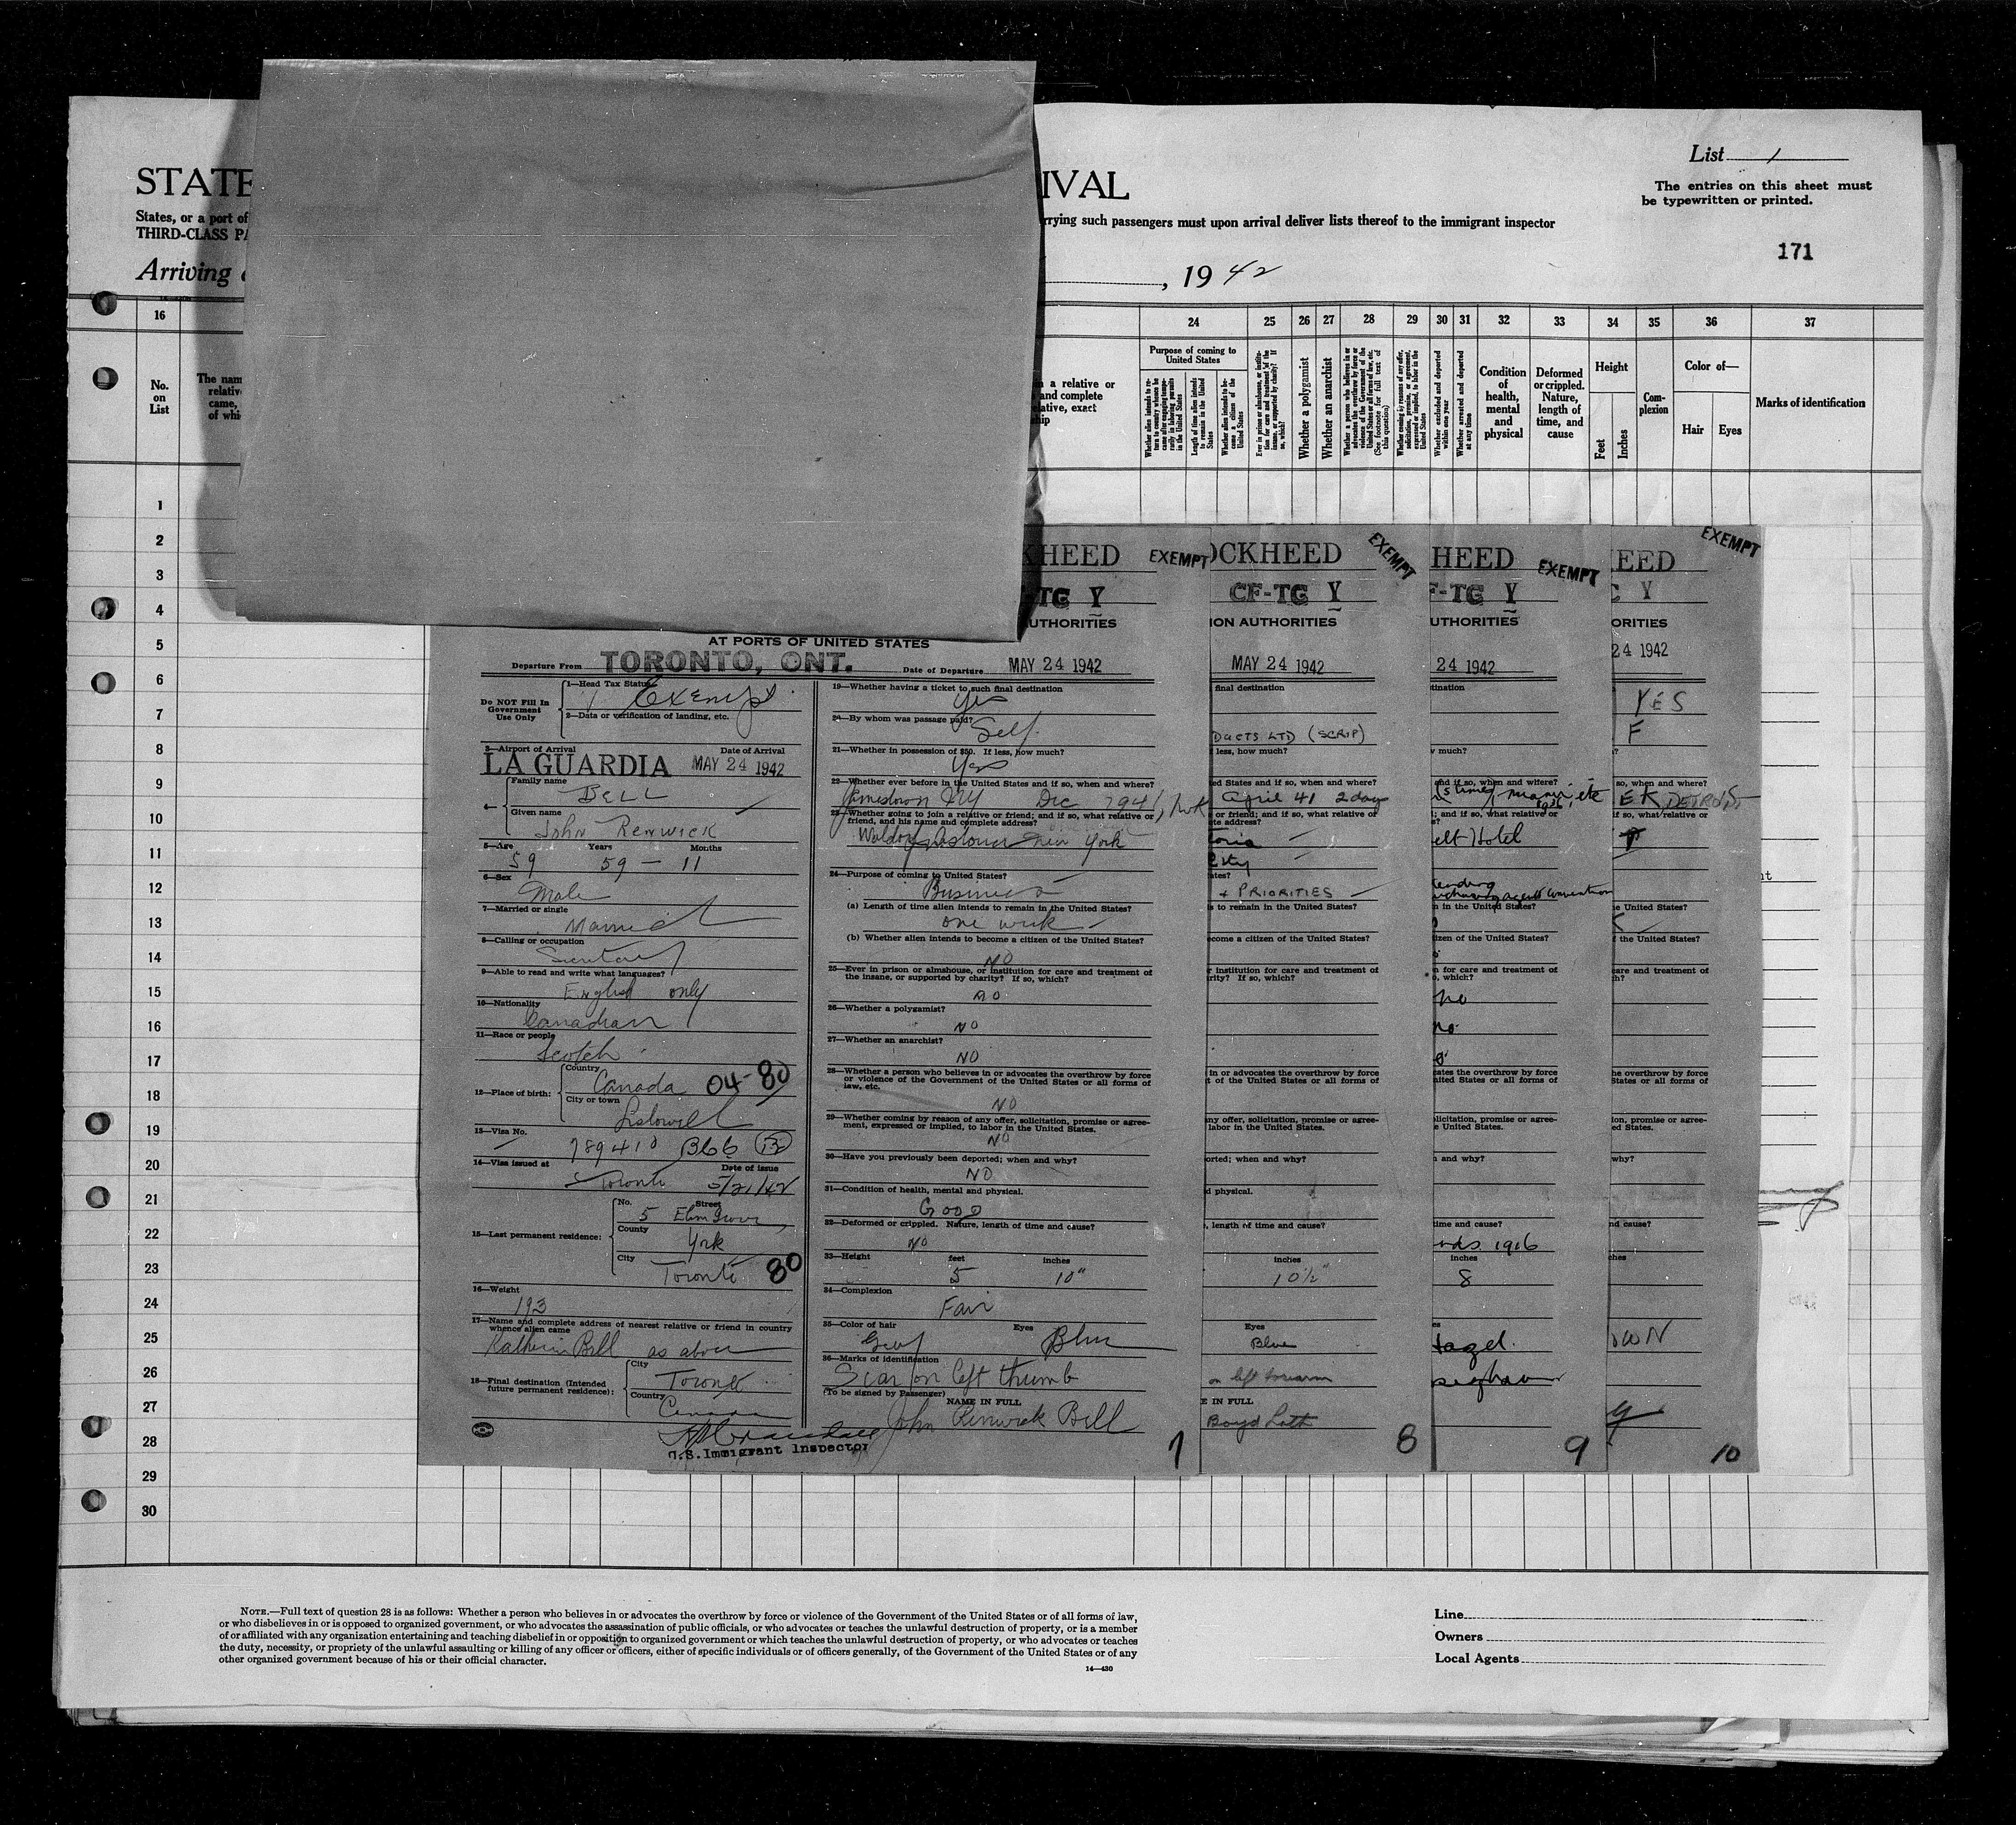 List 1
The entries on this sheet must
be typewritten or printed.
171
STATE
IVAL
States, or a port of
rrying such passengers must upon arrival deliver lists thereof to the immigrant inspector
THIRD-CLASS PA
Arriving
, 19 42
16
24 25 26 27 28 29 30 31 32 33 34 35 36 37
No.
on
List
The nam
relativ
came,
of whi
n a relative or
and complete
elative, exact
hip
Purpose of coming to
United States
Whether a polygamist
Whether an anarchist
Condition
of
health,
mental
and
physical
Deformed
or crippled.
Nature,
length of
time, and
cause
Height
Feet
Inches
Com-
plexion
Color of—
Hair
Eyes
Marks of identification
1
2
3
4
5
6
7
8
9
10
11
12
13
14
15
16
17
18
19
20
21
22
23
24
25
26
27
28
29
30
KHEED EXEMPT
-TG Y
UTHORITIES
AT PORTS OF UNITED STATES
Departure From TORONTO, ONT. Date of Departure MAY 24 1942
Do NOT Fill In
Government
Use Only
1—Head Tax Status
Exempt
2—Data or verification of landing, etc.
3—Airport of Arrival Date of Arrival
LA GUARDIA MAY 24 1942
4 Family name
BELL
Given name
John Renwick
5—Age Years Months
59 59 — 11
6—Sex
Male
7—Married or single
Married
8—Calling or occupation
Secretary
9—Able to read and write what languages?
English only
10—Nationality
Canadian
11—Race or people
Scotch
12—Place of birth:
Country
Canada 04-80
City or town
Listowell
13—Visa No.
789410 3b6
14—Visa issued at Date of issue
Toronto 5/21/42
15—Last permanent residence:
No. Street
5 Elm Grove
County
York
City
Toronto 80
16—Weight
193
17—Name and complete address of nearest relative or friend in country
whence alien came
Katherin Bell as above
18—Final destination (Intended
future permanent residence):
City
Toronto
Country
Canada
U.S. Immigrant Inspector
19—Whether having a ticket to such final destination
Yes
20—By whom was passage paid?
Self.
21—Whether in possession of $50. If less, how much?
Yes
22—Whether ever before in the United States and if so, when and where?
Jamestown NY Dec 1941,
23—Whether going to join a relative or friend; and if so, what relative or
friend, and his name and complete address?
Waldorf Astoria New York
24—Purpose of coming to United States?
Business
(a) Length of time alien intends to remain in the United States?
one week
(b) Whether alien intends to become a citizen of the United States?
NO
25—Ever in prison or almshouse, or institution for care and treatment of
the insane, or supported by charity? If so, which?
no
26—Whether a polygamist?
NO
27—Whether an anarchist?
NO
28—Whether a person who believes in or advocates the overthrow by force
or violence of the Government of the United States or all forms of
law, etc.
NO
29—Whether coming by reason of any offer, solicitation, promise or agree-
ment, expressed or implied, to labor in the United States.
NO
30—Have you previously been deported; when and why?
NO
31—Condition of health, mental and physical.
GOOD
32—Deformed or crippled. Nature, length of time and cause?
NO
33—Height feet inches
5 10"
34—Complexion
Fair
35—Color of hair Eyes
Grey Blue
36—Marks of identification
Scar on left thumb
(To be signed by Passenger)
NAME IN FULL
John Renwick Bell
7
OCKHEED EXEMPT
CF-TG Y
ION AUTHORITIES
MAY 24 1942
final destination
DUCTS LTD (SCRIP)
less, how much?
ed States and if so, when and where?
April 41 2 days
or friend; and if so, what relative or
te address?
toria
City
ates?
+ PRIORITIES
s to remain in the United States?
ecome a citizen of the United States?
r institution for care and treatment of
rity? If so, which?
in or advocates the overthrow by force
t of the United States or all forms of
any offer, solicitation, promise or agree-
labor in the United States.
orted; when and why?
d physical.
, length of time and cause?
inches
10½"
Eyes
Blue
on left forearm
E IN FULL
Boyd Lath
8
HEED EXEMPT
F-TG Y
UTHORITIES
24 1942
tination
w much?
and if so, when and where?
(5 times) Miami, etc
1936
d; and if so, what relative or
s?
elt Hotel
tending
urchasing agents convention
n in the United States?
tizen of the United States?
n for care and treatment of
o, which?
no
no.
cates the overthrow by force
nited States or all forms of
olicitation, promise or agree-
e United States.
n and why?
time and cause?
1916
inches
8
es
Hazel.
9
EED EXEMPT
C Y
ORITIES
24 1942
YES
F
?
so, when and where?
EK DETROIT
if so, what relative or
e United States?
K
f the United States?
care and treatment of
h?
he overthrow by force
States or all forms of
ion, promise or agree-
ed States.
why?
nd cause?
ches
OWN
10
NOTE.—Full text of question 28 is as follows: Whether a person who believes in or advocates the overthrow by force or violence of the Government of the United States or of all forms of law,
or who disbelieves in or is opposed to organized government, or who advocates the assassination of public officials, or who advocates or teaches the unlawful destruction of property, or is a member
of or affiliated with any organization entertaining and teaching disbelief in or opposition to organized government or which teaches the unlawful destruction of property, or who advocates or teaches
the duty, necessity, or propriety of the unlawful assaulting or killing of any officer or officers, either of specific individuals or of officers generally, of the Government of the United States or of any
other organized government because of his or their official character.
14—430
Line
Owners
Local Agents